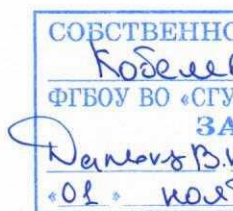 СОБСТВЕННО
Кобелев
ФГБОУ ВО «СГУ
ЗА
В.
«01» ноя